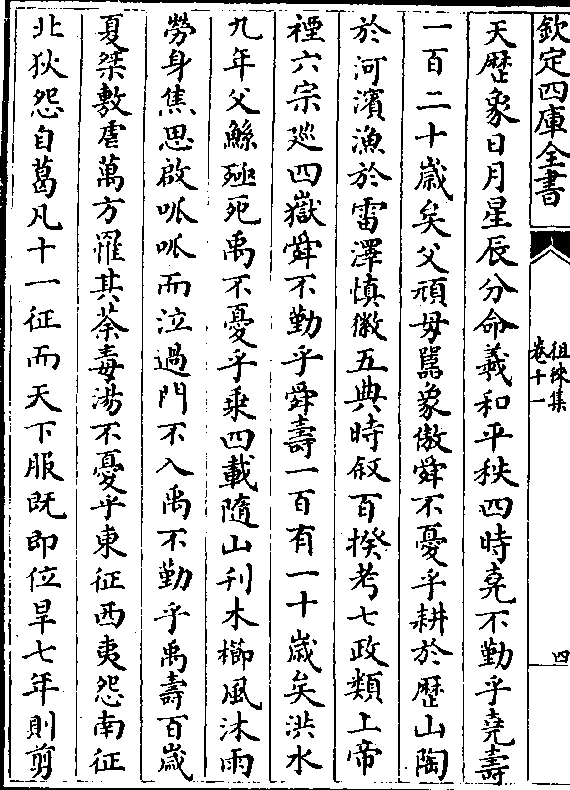 欽定四庫全書
徂徠集
卷十一
四
天厯象日月星辰分命羲和平秩四時堯不勤乎堯壽
一百二十歳矣父頑母嚚象傲舜不憂乎耕於歴山陶
於河濱漁於雷澤慎徽五典時敘百揆考七政類上帝
禋六宗廵四嶽舜不勤乎舜壽一百有一十歳矣洪水
九年父鯀殛死禹不憂乎乘四載隨山刋木櫛風沐雨
勞身焦思啟呱呱而泣過門不入禹不勤乎禹壽百歳
夏桀敷虐萬方罹其荼毒湯不憂乎東征西夷怨南征
北狄怨自葛凡十一征而天下服既即位旱七年則剪